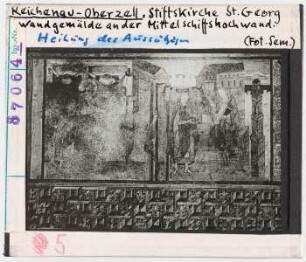 Reichenau-Oberzell, Stiftskirche St. Georg
Wandgemälde an der Mittelschiffshochwand
Heilung des Aussätzigen
(Fot. Sem.)
87064
5